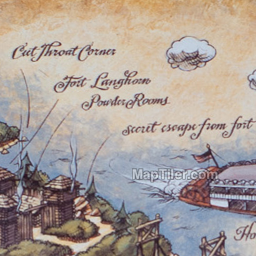 Cut Throat Corner
Fort Langhorn
Powder Rooms
secret escape from fort
MapTiler.com